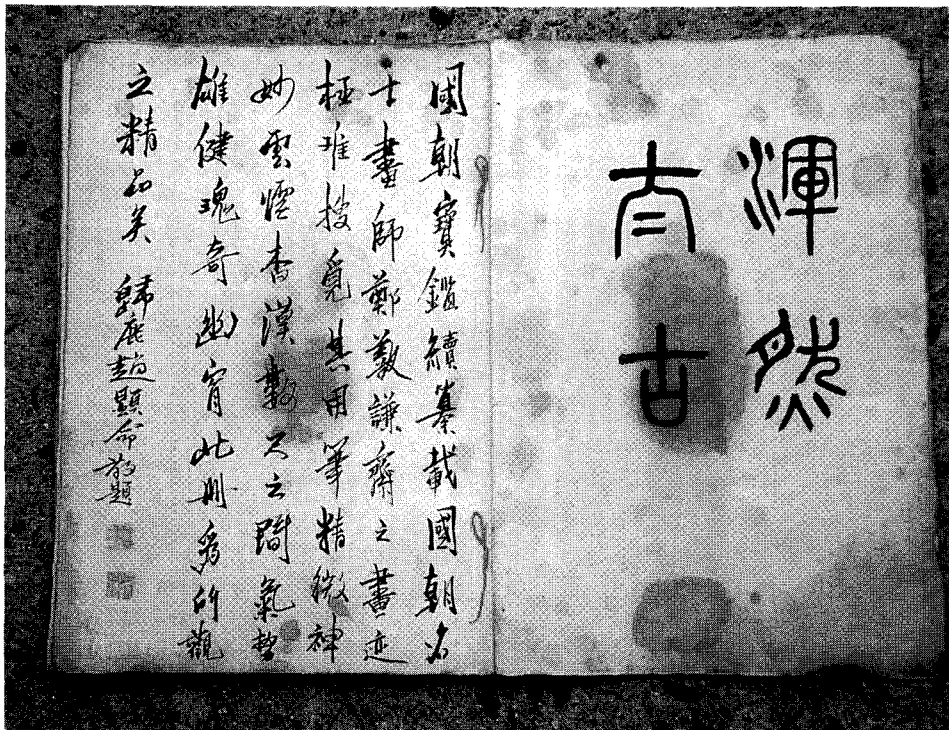 渾然
太古
國朝寶鑑續纂載國朝名
士畫師鄭敾謙齋之畫迹
極難搜覓其用筆精微神
妙雲烟杳漠數尺之間氣勢
雄健瑰奇幽窅此冊爲所觀
之精品矣 歸鹿趙顯命敬題